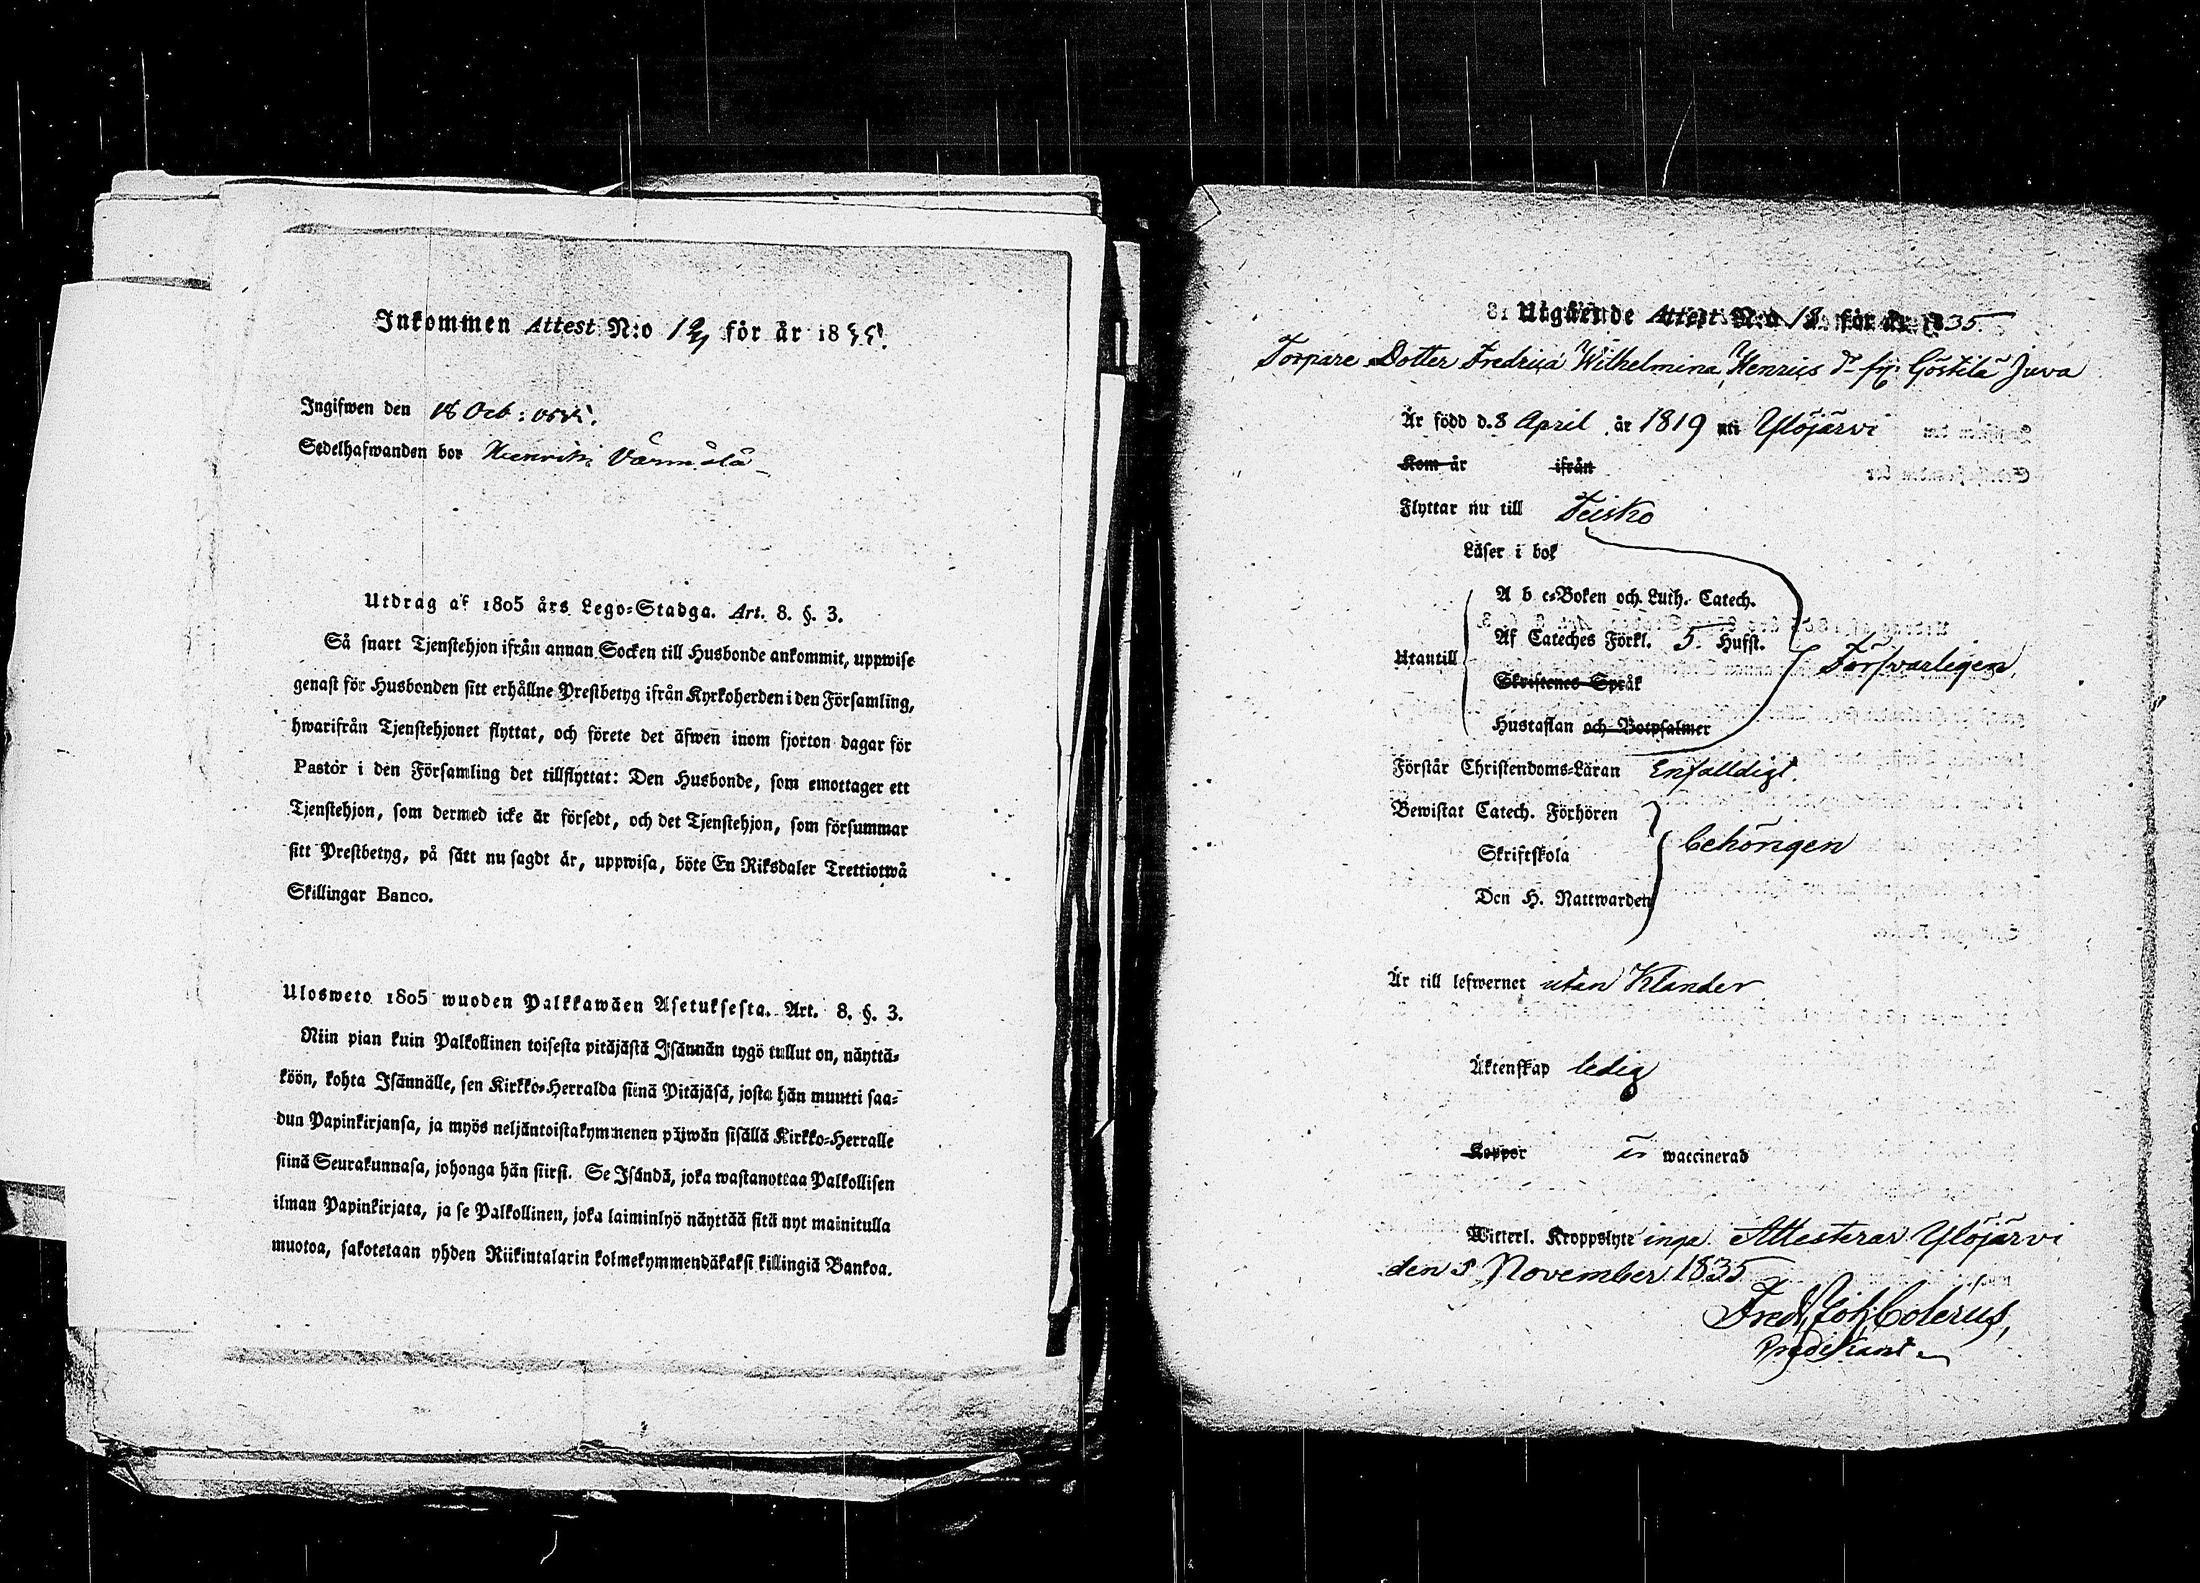 Inkommen Attest N:o 19 för år 1835.
Ingifwen den 18 Oct:
Sedelhafwanden bor Henriki Värmälä
Utdrag af 1805 års Lego=Stadga. Art. 8. §. 3.
Så snart Tjenstehjon ifrån annan Socken till Husbonde ankommit, uppwise
genast för Husbonden sitt erhållne Prestbetyg ifrån Kyrkoherden i den Församling,
hwarifrån Tjenstehjonet flyttat, och förete det äfwen inom fjorton dagar för
Pastor i den Församling det tillflyttat: Den Husbonde, som emottager ett
Tjenstehjon, som dermed icke är försedt, och det Tjenstehjon, som försummar
sitt Prestbetyg, på sätt nu sagdt är, uppwisa, böte En Riksdaler Trettiotwå
Skillingar Banco.
Ulosweto 1805 wuoden Palkkawäen Asetuksesta. Art. 8. §. 3.
Niin pian kuin Palkollinen toisesta pitäjästä Isännän tygö tullut on, näyttä=
köön, kohta Isännälle, sen Kirkko=Herralda siinä Pitäjäsä, josta hän muutti saa=
dun Papinkirjansa, ja myös neljäntoistakymmenen päiwän sisällä Kirkko=Herralle
siinä Seurakunnasa, johonga hän siirsi. Se Isändä, joka wastanottaa Palkollisen
ilman Papinkirjata, ja se Palkollinen, joka laiminlyö näyttää sitä nyt mainitulla
muotoa, sakotetaan yhden Riikintalarin kolmekymmendäkaksi killingiä Bankoa.
Utgående Attest N:o 18 för år 1835
Torpare Dotter Fredrica Wilhelmina Henrics Dr fr: Göstilä Juva
Är född d. 8 April år 1819 uti Ylöjärvi
Kom år ifrån
Flyttar nu till Teisko
Läser i bok
A b c=Boken och Luth. Catech.
Af Cateches Förkl. 5. Hufst.
Utantill Försvarligen
Skriftenes Språk
Hustaflan och Botpsalmer
Förstår Christendoms=Läran Enfalldigt.
Bewistat Catech. Förhören
Skriftskola behörigen
Den H. Nattwarden
Är till lefwernet utan Klander
Äktenskap ledig
Koppor är waccinerad
Witterl. Kroppslyte inga. Attesterar Ylöjärvi
den 5 November 1835
Fredr. Joh. Colerus,
Predikant.